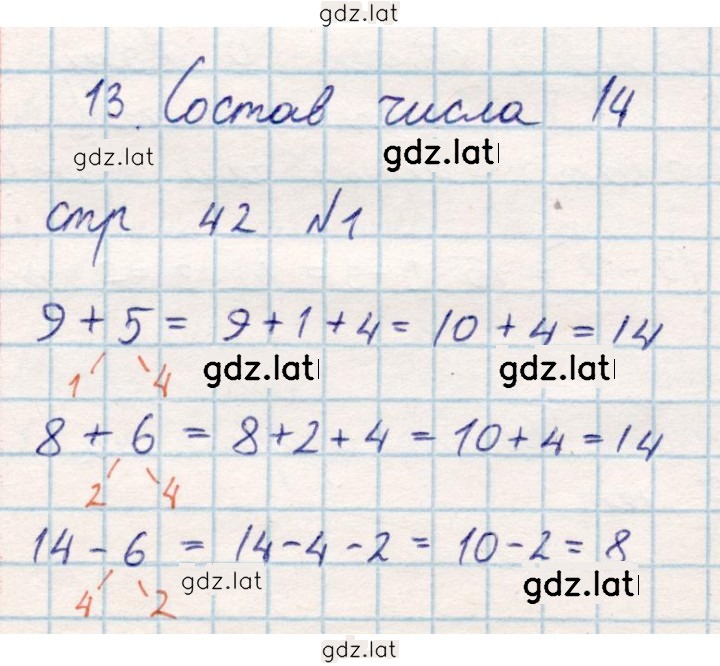 gdz.lat
13. Состав числа 14
gdz.lat gdz.lat
стр 42 №1
9 + 5 = 9 + 1 + 4 = 10 + 4 = 14
1 4 gdz.lat gdz.lat
8 + 6 = 8 + 2 + 4 = 10 + 4 = 14
2 4
14 - 6 = 14 - 4 - 2 = 10 - 2 = 8
4 2 gdz.lat gdz.lat
gdz.lat